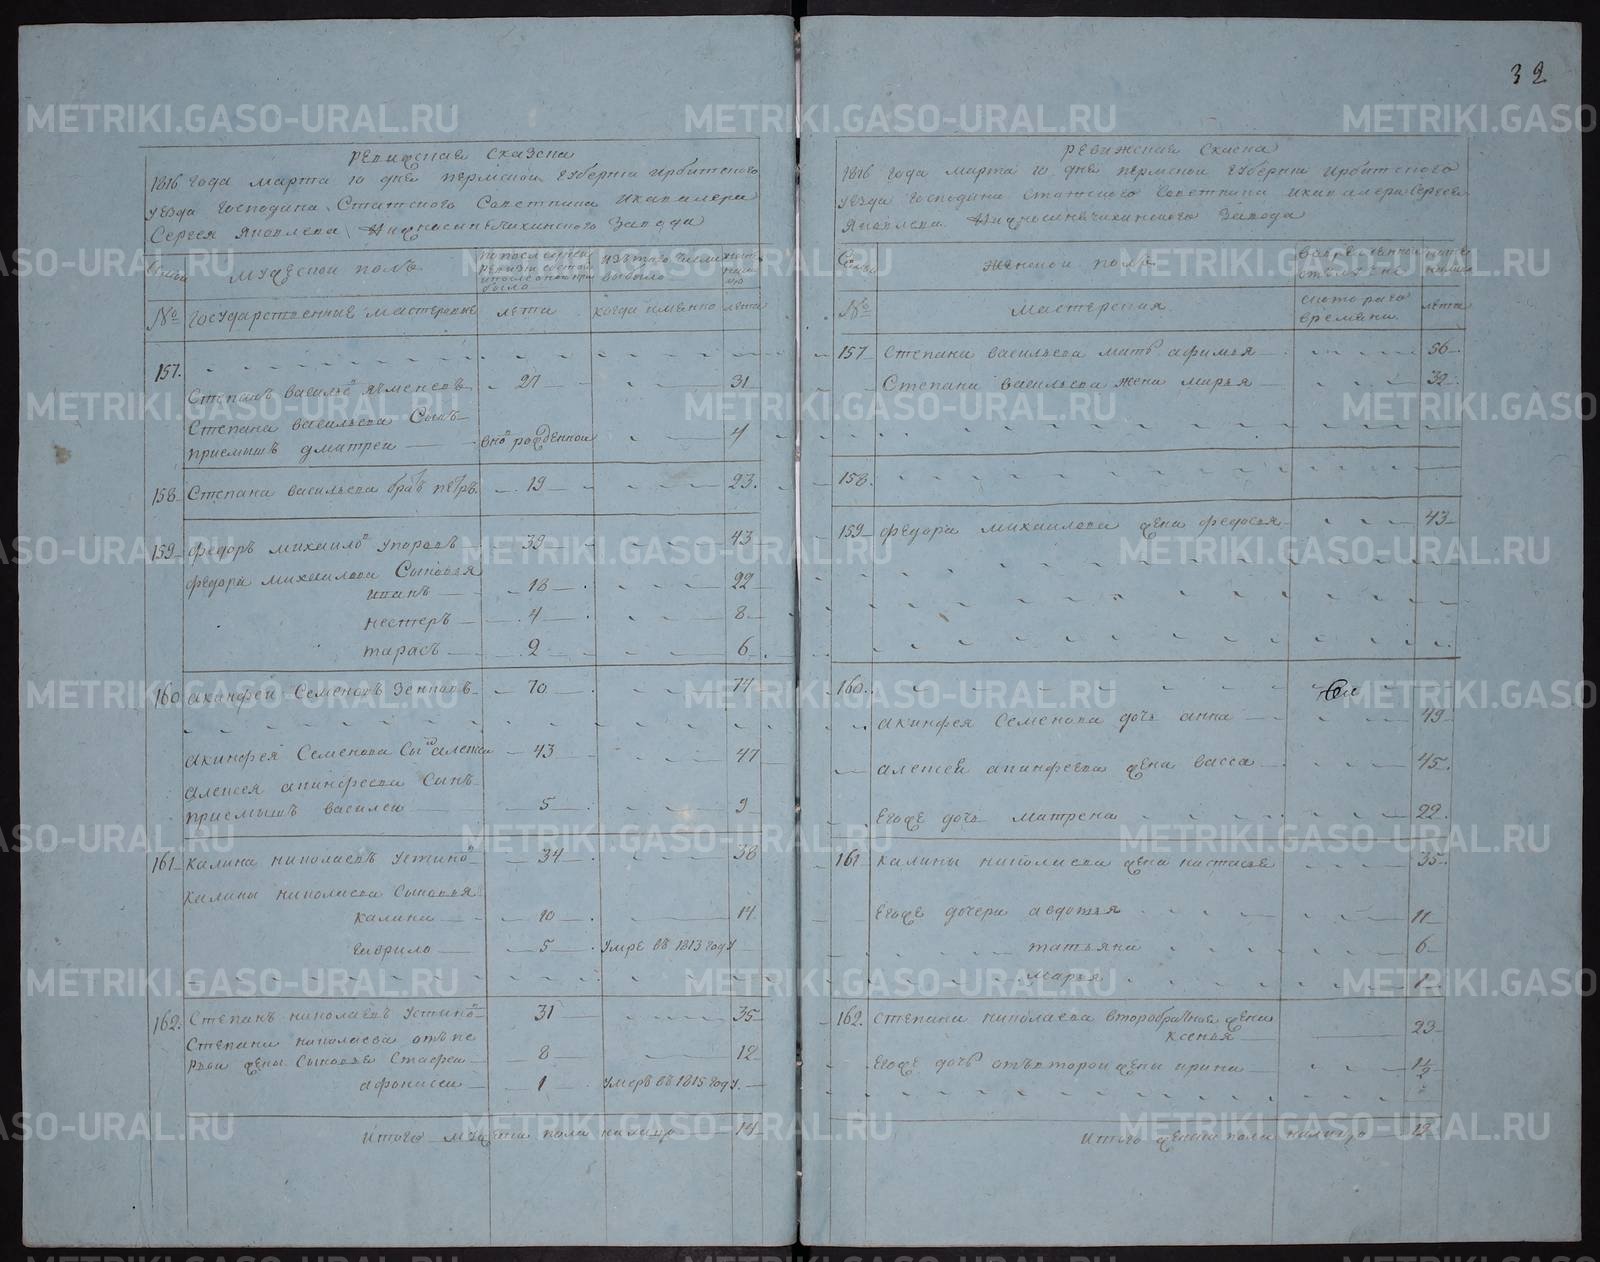 32
Ревижская Сказка
1816 года марта 10 дня пермской губерни Ирбитского
уезда Господина Статского Советника Икавалера
Сергея Яковлева Нижносинечихинского Завода
мужеской полъ
№ Государственные мастерские лета когда именно лета
157.
Степанъ Василье Ячменевъ 27 31
Степана васильева Сынъ
приемышъ дмитреи вно рожденной 4
158 Степана васильева братъ петръ 19 23.
159 федоръ михаило упоровъ 39 43
федора михаилова Сыновья
иванъ 18 22
нестеръ 4 8
тарасъ 2 6
160 акинфеи Семеновъ Зенковъ 70 74
акинфея Семенова Сынъ алексеи 43 47
алексея акинфеева Сынъ
приемышъ василеи 5 9
161 калина николаевъ устино 34 38
калины николаева Сыновья
калина 10 14
гаврило 5 умре въ 1813 году
162. Степанъ николаевъ устино 31 35
Степана николаева отъ пе
рвои жены Сыновья Стафеи 8 12
афонасеи 1 умеръ въ 1815 году.
Итого мужеска пола налицо 14
Ревижская Сказка
1816 года марта 10 дня пермской губерни Ирбитского
уезда Господина Статского Советника Икавалера Сергея
Яковлева Нижносинечихинского Завода
Женской полъ
№ мастерския лета
157 Степана васильева мать афимья 56
Степана васильева жена марья 32
158.
159 федора михаилова жена федосья 43
160.
акинфея Семенова дочь анна 49
алексея акинфеева жена васса 45.
Егоже дочь матрена 22.
161 калины николаева жена настасья 35
Егоже дочери авдотья 11
татьяна 6
марья 1
162. Степана николаева второбрачная жена
ксенья 23
Егоже дочь отвторои жены ирина 1½
Итого женска пола налицо 12
METRIKI.GASO-URAL.RU